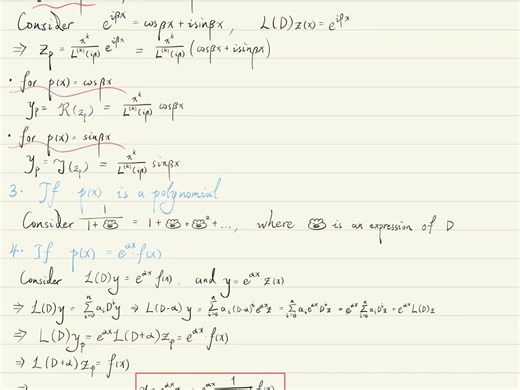 Consider e^{iβx} = cosβx + isinβx , L(D)z(x) = e^{iβx}
⇒ Z_p = \frac{x^k}{L^{(k)}(iβ)} e^{iβx} = \frac{x^k}{L^{(k)}(iβ)} (cosβx + isinβx)
· for p(x) = cosβx
y_p = R(z_p) = \frac{x^k}{L^{(k)}(iβ)} cosβx
· for p(x) = sinβx
y_p = J(z_p) = \frac{x^k}{L^{(k)}(iβ)} sinβx
3. If p(x) is a polynomial
Consider \frac{1}{1+🐷} = 1+🐷+🐷²+..., where 🐷 is an expression of D
4. If p(x) = e^{αx}·f(x)
Consider L(D)y = e^{αx}f(x), and y = e^{αx}z(x)
⇒ L(D)y = \sum_{i=0}^{n} a_i D^i y → L(D-α)y = \sum_{i=0}^{n} a_i(D-α)^i e^{αx}z = \sum_{i=0}^{n} a_i e^{αx} D^i z = e^{αx} \sum_{i=0}^{n} a_i D^i z = e^{αx} L(D)z
⇒ L(D)y_p = e^{αx}L(D+α)z_p = e^{αx}·f(x)
⇒ L(D+α)z_p = f(x)